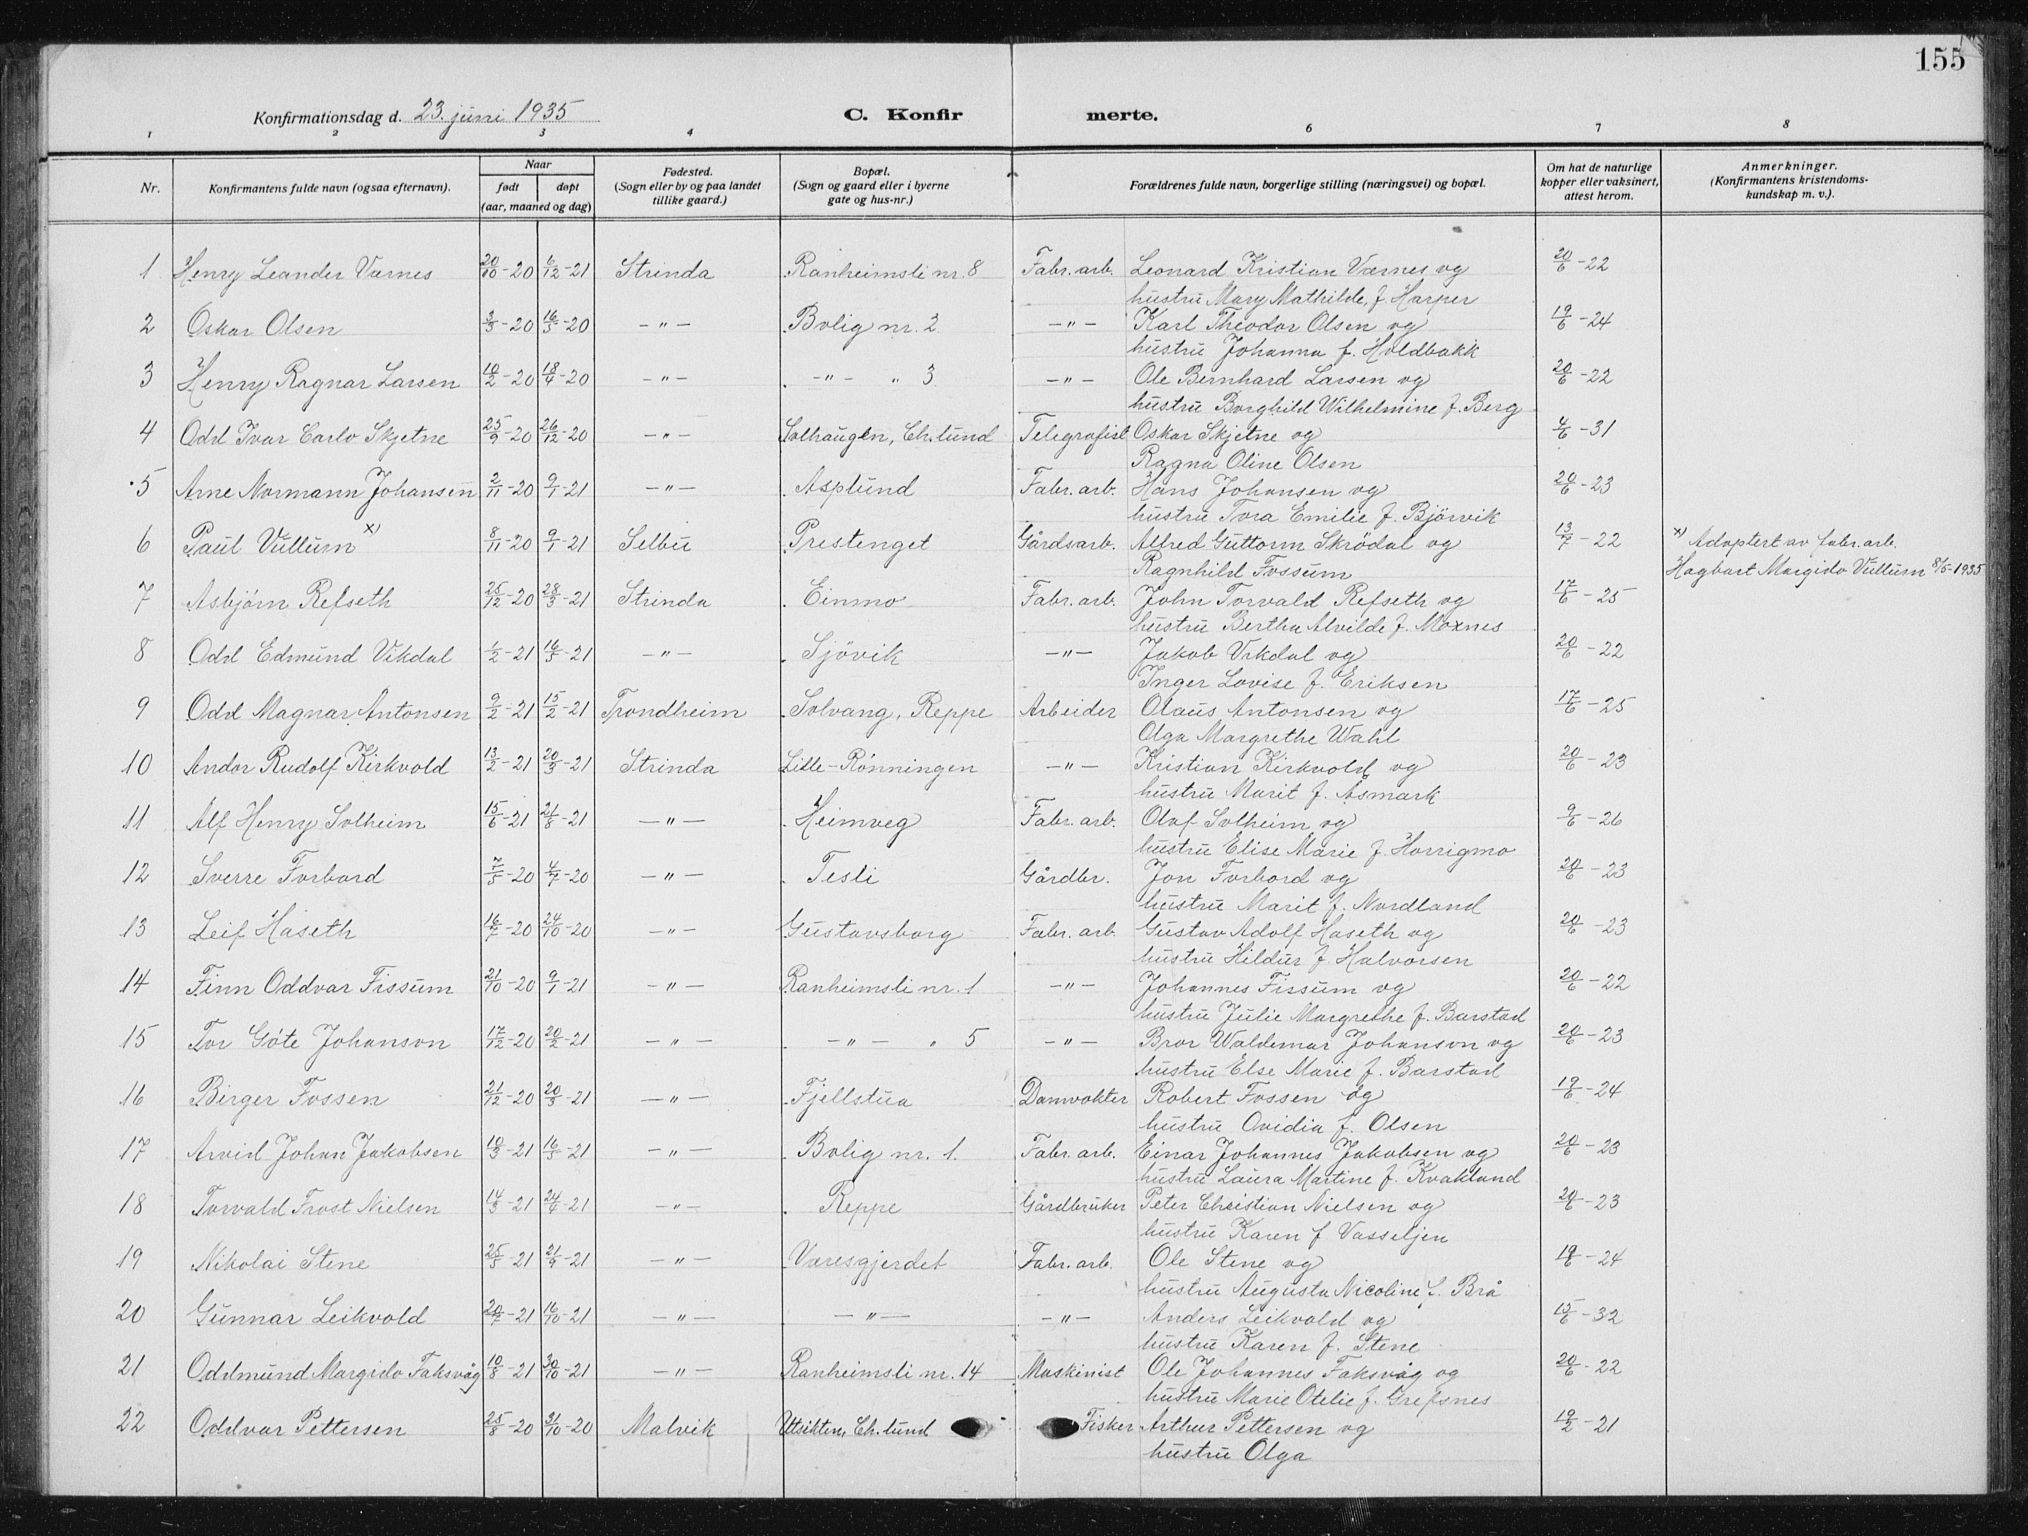 155
Konfirmationsdag d. 23. juni 1935 C. Konfirmerte.
1 2 3 4 5 6 7 8
Nr. Konfirmantens fulde navn (ogsaa efternavn). Naar født døpt (aar, maaned og dag) Fødested. (Sogn eller by og paa landet tillike gaard.) Bopæl. (Sogn og gaard eller i byerne gate og hus-nr.) Forældrenes fulde navn, borgerlige stilling (næringsvei) og bopæl. Om hat de naturlige kopper eller vaksinert, attest herom. Anmerkninger. (Konfirmantens kristendomskundskap m. v.).
1 Henry Leander Værnes 20/10-20 6/12-21 Strinda Ranheimsli nr. 8 Fabr. arb. Leonard Kristian Værnes og 20/6-22
hustru Mary Mathilde, f. Harper
2 Oskar Olsen 3/3-20 16/5-20 -"- Bolig nr. 2 -"- Karl Theodor Olsen og 19/6-24
hustru Johanna f. Holdbakk
3 Henry Ragnar Larsen 10/2-20 18/4-20 -"- -"- " 3 -"- Ole Bernhard Larsen og 20/6-22
hustru Borghild Wilhelmine f. Berg
4 Odd Ivar Carlo Skjetne 25/9-20 26/12-20 -"- Solhaugen, Ch.lund Telegrafist Oskar Skjetne og 4/6-31
Ragna Oline Olsen
5 Arne Normann Johansen 2/11-20 9/1-21 -"- Asplund Fabr. arb. Hans Johansen og 20/6-23
hustru Tora Emilie f. Bjørvik
6 Paul Vullum x) 8/11-20 9/1-21 Selbu Prestenget Gårdsarb. Alfred Guttorm Skrödal og 13/7-22 x) Adoptert av fabr. arb.
Ragnhild Fossum Hagbart Margido Vullum 8/5-1935
7 Asbjørn Refseth 25/12-20 28/3-21 Strinda Einmo Fabr. arb. John Torvald Refseth og 17/6-25
hustru Bertha Alvilde f. Moxnes
8 Odd Edmund Vikdal 1/2-21 16/5-21 -"- Sjövik -"- Jakob Vikdal og 20/6-22
Inger Lovise f. Eriksen
9 Odd Magnar Antonsen 9/2-21 15/2-21 Trondheim Solvang, Reppe Arbeider Olaus Antonsen og 17/6-25
Olga Margrethe Wahl
10 Andor Rudolf Kirkvold 13/2-21 20/3-21 Strinda Lille-Rønningen -"- Kristian Kirkvold og 20/6-23
hustru Marit f. Asmark
11 Alf Henry Solheim 15/6-21 21/8-21 -"- Heimveg Fabr. arb. Olaf Solheim og 9/6-26
hustru Elise Marie f. Horrigmo
12 Sverre Forbord 7/5-20 4/7-20 -"- Tesli Gårdbr. Jon Forbord og 20/6-23
hustru Marit f. Nordland
13 Leif Haseth 16/7-20 24/10-20 -"- Gustavsborg Fabr. arb. Gustav Adolf Haseth og 20/6-23
hustru Hildur f. Halvorsen
14 Finn Oddvar Fissum 21/10-20 9/1-21 -"- Ranheimsli nr. 1 -"- Johannes Fissum og 20/6-22
hustru Julie Margrethe f. Barstad
15 Tor Göte Johanson 17/12-20 20/2-21 -"- -"- " 5 -"- Bror Waldemar Johanson og 20/6-23
hustru Else Marie f. Barstad
16 Birger Fossen 21/12-20 20/3-21 -"- Fjellstua Damvokter Robert Fossen og 19/6-24
hustru Ovidia f. Olsen
17 Arvid Johan Jakobsen 10/3-21 16/5-21 -"- Bolig nr. 1. Fabr. arb. Einar Johannes Jakobsen og 20/6-23
hustru Laura Martine f. Kvakland
18 Torvald Frost Nielsen 14/3-21 24/4-21 -"- Reppe Gårdbruker Peter Christian Nielsen og 20/6-23
hustru Karen f Vasseljen
19 Nikolai Stene 25/5-21 21/9-21 -"- Væresgjerdet Fabr. arb. Ole Stene og 19/6-24
hustru Augusta Nicoline f. Brå
20 Gunnar Leikvold 20/7-21 16/10-21 -"- -"- -"- Anders Leikvold og 15/6-32
hustru Karen f. Stene
21 Oddmund Margido Faksvåg 10/8-21 30/10-21 -"- Ranheimsli nr. 14 Maskinist Ole Johannes Faksvåg og 20/6-22
hustru Marie Otelie f. Grefsnes
22 Oddvar Pettersen 25/8-20 31/10-20 Malvik Utsikten, Ch.lund Fisker Arthur Pettersen og 19/2-21
hustru Olga